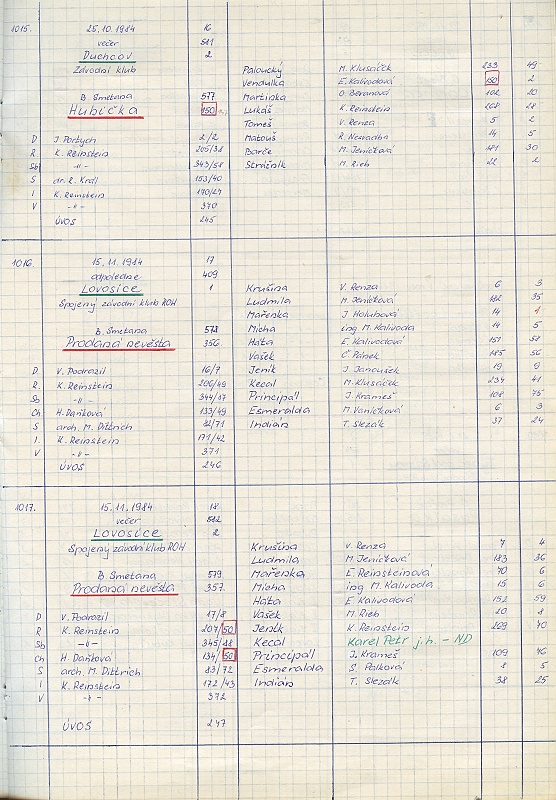 1015. 25.10.1984 16
večer 511
Duchcov 2
Závodní klub Paloucký M. Klusáček 233 49
Vendulka E. Kalivodová 150 2
B. Smetana 577 Martinka O. Beranová 102 20
Hubička 150 Lukáš K. Reinstein 208 28
Tomeš V. Renza 5 2
D J. Portych 2/2 Matouš R. Nesvadba 14 5
R K. Reinstein 205/38 Barče M. Jeníčková 181 30
Sb -"- 343/58 Strážník M. Rieb 22 2
S dr. R. Král 153/40
I K. Reinstein 170/27
V -"- 370
ÚVOS 245
1016. 15.11.1984 17
odpoledne 409
Lovosice 1 Krušina V. Renza 6 3
Spojený závodní klub ROH Ludmila M. Jeníčková 182 35
Mařenka J. Holubová 14 1
B. Smetana 578 Mícha ing. M. Kalivoda 14 5
Prodaná nevěsta 356 Háta E. Kalivodová 151 58
Vašek Č. Pánek 185 56
D. V. Podrazil 16/7 Jeník J. Janoušek 19 9
R. K. Reinstein 206/49 Kecal M. Klusáček 234 41
Sb -"- 344/17 Principál J. Krameš 108 75
Ch H. Daňková 133/49 Esmeralda M. Vaníčková 6 3
S arch. M. Dittrich 82/71 Indián T. Slezák 37 24
I. K. Reinstein 171/42
V -"- 371
ÚVOS 246
1017. 15.11.1984 18
večer 512
Lovosice 2
Spojený závodní klub ROH Krušina V. Renza 7 4
Ludmila M. Jeníčková 183 36
B. Smetana 579 Mařenka E. Reinsteinová 70 6
Prodaná nevěsta 357. Mícha ing M. Kalivoda 15 6
Háta E. Kalivodová 152 59
D V. Podrazil 17/8 Vašek M. Rieb 20 8
R K. Reinstein 207/50 Jeník K. Reinstein 209 40
Sb -"- 345/18 Kecal Karel Petr j.h. - ND
Ch H. Daňková 134/50 Principál J. Krameš 109 46
S arch. M. Dittrich 83/72 Esmeralda S. Palková 8 5
I K. Reinstein 172/43 Indián T. Slezák 38 25
V -"- 372
ÚVOS 247